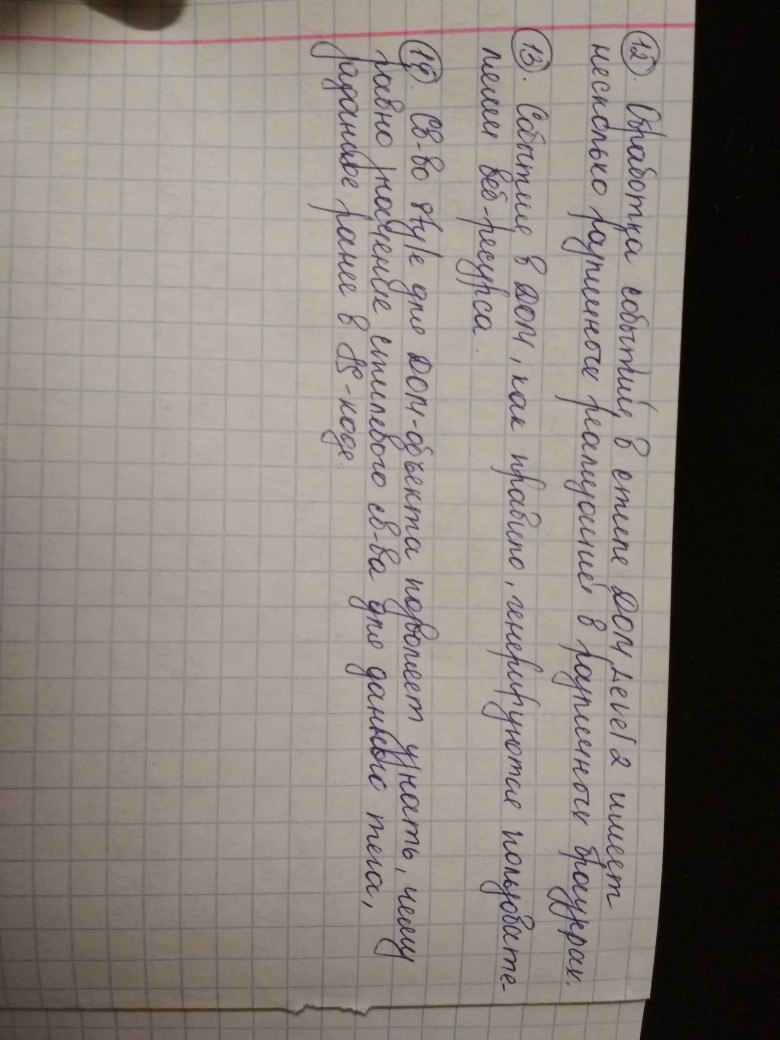 12. Обработка событий в стиле DOM Level 2 имеет
несколько различных реализаций в различных браузерах.
13. События в DOM, как правило, генерируются пользовате-
лями веб-ресурса.
14. Св-во style для DOM-объекта позволяет узнать, чему
равно значение стилевого св-ва для данного тега,
заданное ранее в JS-коде.